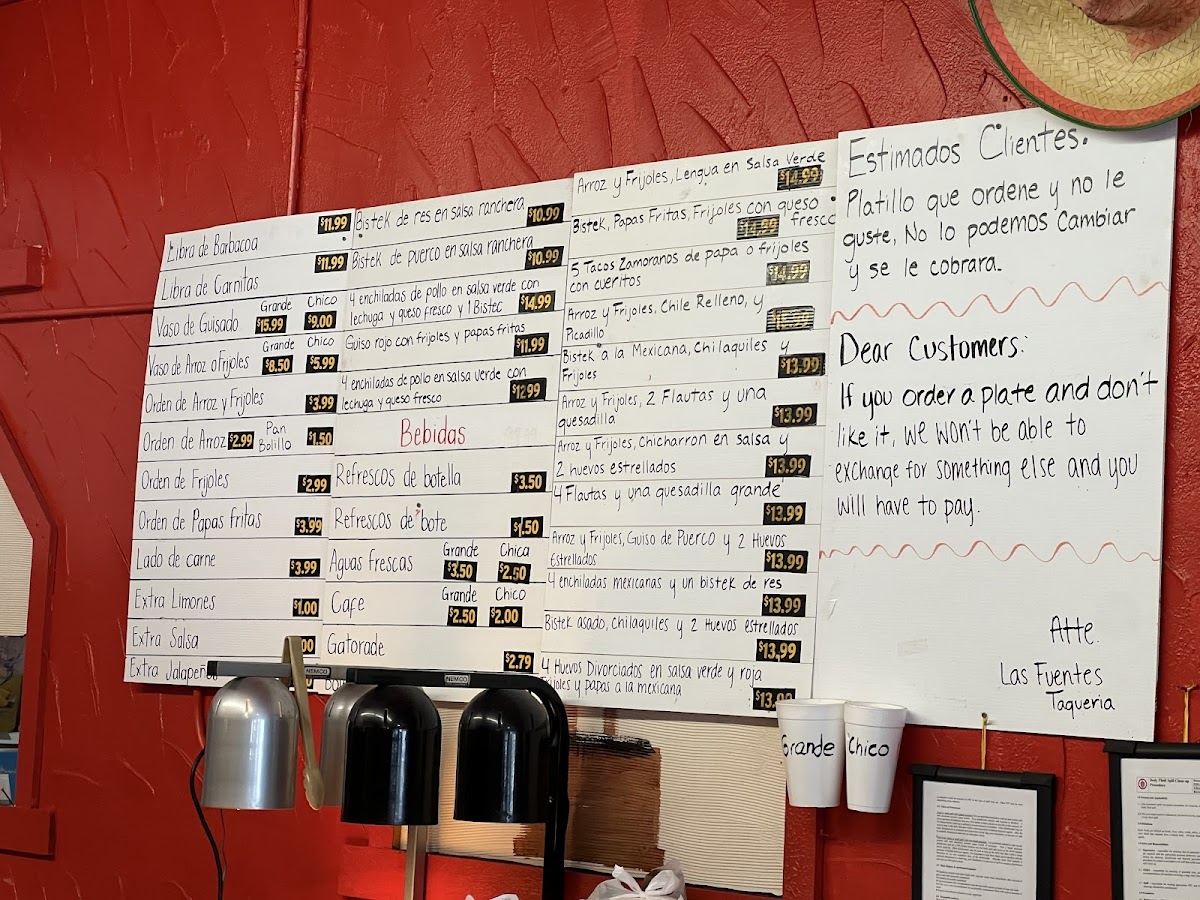 Libra de Barbacoa $11.99
Libra de Carnitas $11.99
Grande Chico
Vaso de Guisado $15.99 $9.00
Grande Chico
Vaso de Arroz o Frijoles $8.50 $5.99
Orden de Arroz y Frijoles $3.99
Orden de Arroz $2.99 Pan Bolillo $1.50
Orden de Frijoles $2.99
Orden de Papas fritas $3.99
Lado de carne $3.99
Extra Limones $1.00
Extra Salsa
Extra Jalapeños
Bistek de res en salsa ranchera $10.99
Bistek de puerco en salsa ranchera $10.99
4 enchiladas de pollo en salsa verde con
lechuga y queso fresco y 1 Bistec $14.99
Guiso rojo con frijoles y papas fritas $11.99
4 enchiladas de pollo en salsa verde con
lechuga y queso fresco $12.99
Bebidas
Refrescos de botella $3.50
Refrescos de bote $1.50
Grande Chica
Aguas frescas $3.50 $2.50
Grande Chico
Cafe $2.50 $2.00
Gatorade $2.79
Arroz y Frijoles, Lengua en Salsa Verde
$14.99
Bistek, Papas Fritas, Frijoles con queso
$14.99 fresco
5 Tacos Zamoranos de papa o frijoles
con cueritos $14.99
Arroz y Frijoles, Chile Relleno, y
Picadillo
Bistek a la Mexicana, Chilaquiles y
Frijoles $13.99
Arroz y Frijoles, 2 Flautas y una
quesadilla $13.99
Arroz y Frijoles, Chicharron en salsa y
2 huevos estrellados $13.99
4 Flautas y una quesadilla grande
$13.99
Arroz y Frijoles, Guiso de Puerco y 2 Huevos
Estrellados $13.99
4 enchiladas mexicanas y un bistek de res
$13.99
Bistek asado, Chilaquiles y 2 Huevos estrellados
$13.99
4 Huevos Divorciados en salsa verde y roja
frijoles y papas a la mexicana $13.99
Estimados Clientes.
Platillo que ordene y no le
guste, No lo podemos Cambiar
y se le cobrara.
Dear Customers:
If you order a plate and don't
like it, we won't be able to
exchange for something else and you
will have to pay.
Atte.
Las Fuentes
Taqueria
NEMCO
NEMCO
Grande
Chico
Body Fluid Spill Clean-up
Procedure